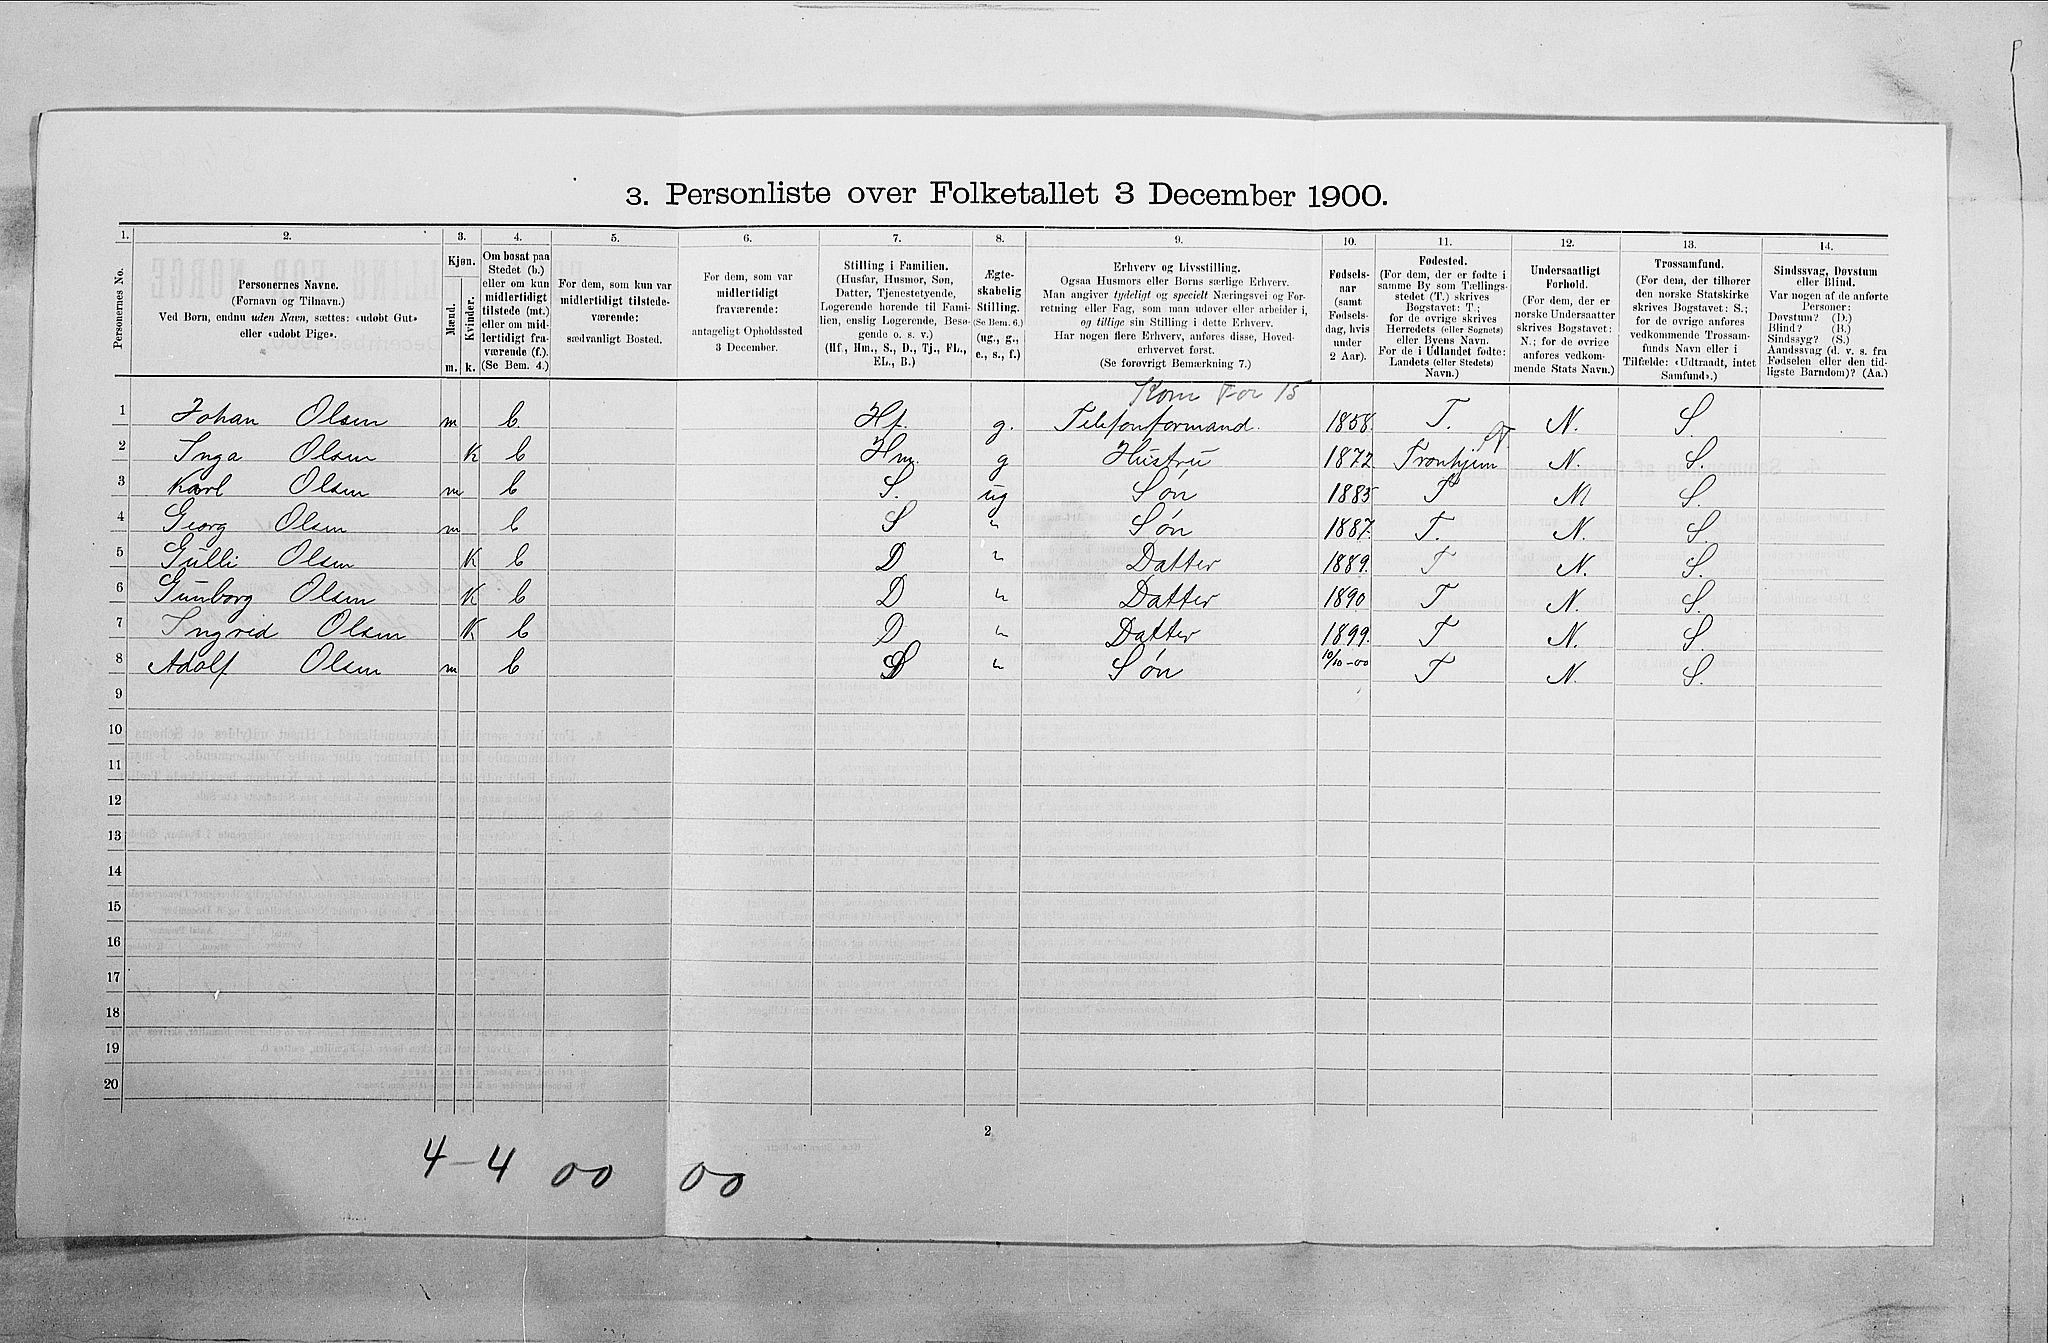 3. Personliste over Folketallet 3 December 1900.
1. 2. 3. 4. 5. 6. 7. 8. 9. 10. 11. 12. 13. 14.
Personernes No.
Personernes Navne.
(Fornavn og Tilnavn.)
Ved Børn, endnu uden Navn, sættes: «udøbt Gut»
eller «udøbt Pige».
Kjøn.
Mænd.
Kvinder.
m. k.
Om bosat paa
Stedet (b.)
eller om kun
midlertidigt
tilstede (mt.)
eller om mid-
lertidigt fra-
værende (f.).
(Se Bem. 4.)
For dem, som kun var
midlertidigt tilstede-
værende:
sædvanligt Bosted.
For dem, som var
midlertidigt
fraværende:
antageligt Opholdssted
3 December.
Stilling i Familien.
(Husfar, Husmor, Søn,
Datter, Tjenestetyende,
Logerende hørende til Fami-
lien, enslig Logerende, Besø-
gende o. s. v.)
(Hf., Hm., S., D., Tj., FL.,
EL., B.)
Ægte-
skabelig
Stilling.
(Se Bem. 6.)
(ug., g.,
e., s., f.)
Erhverv og Livsstilling.
Ogsaa Husmors eller Børns særlige Erhverv.
Man angiver tydeligt og specielt Næringsvei og For-
retning eller Fag, som man udøver eller arbeider i,
og tillige sin Stilling i dette Erhverv.
Har nogen flere Erhverv, anføres disse, Hoved-
erhvervet først.
(Se forøvrigt Bemærkning 7.)
Fødsels-
aar
(samt
Fødsels-
dag, hvis
under
2 Aar).
Fødested.
(For dem, der er fødte i
samme By som Tællings-
stedet (T.) skrives
Bogstavet: T.;
for de øvrige skrives
Herredets (eller Sognets)
eller Byens Navn.
For de i Udlandet fødte:
Landets (eller Stedets)
Navn.)
Undersaatligt
Forhold.
(For dem, der er
norske Undersaatter
skrives Bogstavet:
N.; for de øvrige
anføres vedkom-
mende Stats Navn.)
Trossamfund.
(For dem, der tilhører
den norske Statskirke
skrives Bogstavet: S.;
for de øvrige anføres
vedkommende Trossam-
funds Navn eller i
Tilfælde: «Udtraadt, intet
Samfund».)
Sindssvag, Døvstum
eller Blind.
Var nogen af de anførte
Personer:
Døvstum? (D.)
Blind? (B.)
Sindssyg? (S.)
Aandssvag (d. v. s. fra
Fødselen eller den tid-
ligste Barndom)? (Aa.)
Kom For 15
1 Johan Olsen m b. Hf. g. Telefonformand. 1858. T. N. S.
2 Inga Olsen K b Hm. g Hustru 1872 Tronhjem N. S.
3 Karl Olsen m b S. ug Søn 1885 T N S.
4 Georg Olsen m b S " Søn 1887. T. N. S.
5 Gulli Olsen K b D " Datter 1889. T N. S.
6 Gunborg Olsen K b D " Datter 1890 T N. S.
7 Ingrid Olsen K b D " Datter 1899. T N. S.
8 Adolf Olsen m b S " Søn 10/10-00 T N. S.
9
10
11
12
13
14
15
16
17
18
19
20
2
4-4 00 00